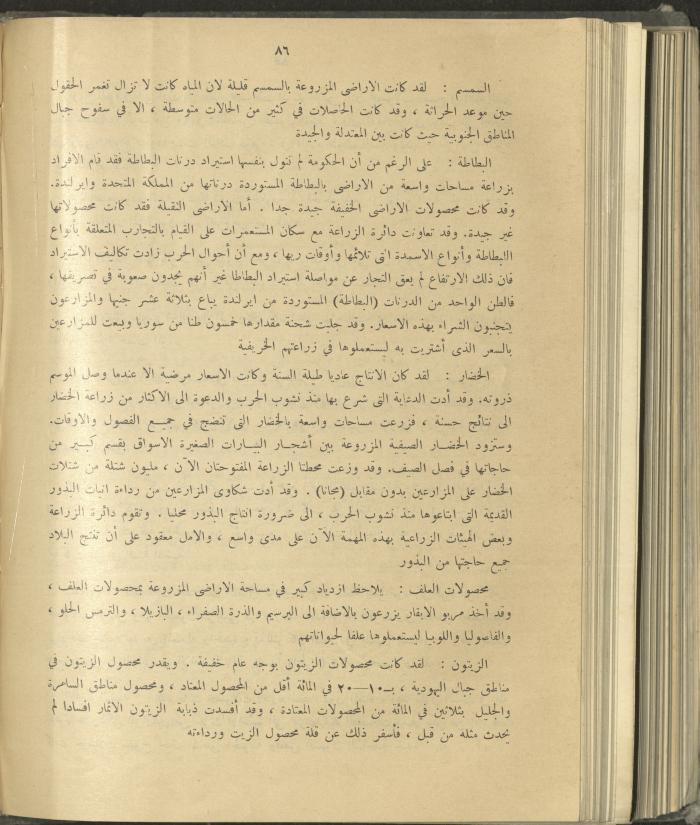 ٨٦
السمسم : لقد كانت الاراضى المزروعة بالسمسم قليلة لان المياه كانت لا تزال تغمر الحقول
حين موعد الحراثة ، وقد كانت الحاصلات في كثير من الحالات متوسطة ، الا في سفوح جبال
المناطق الجنوبية حيث كانت بين المعتدلة والجيدة
البطاطة : على الرغم من أن الحكومة لم تتول بنفسها استيراد درنات البطاطة فقد قام الافراد
بزراعة مساحات واسعة من الاراضى بالبطاطة المستوردة درناتها من المملكة المتحدة وايرلندة.
وقد كانت محصولات الاراضى الخفيفة جيدة جدا . أما الاراضى الثقيلة فقد كانت محصولاتها
غير جيدة. وقد تعاونت دائرة الزراعة مع سكان المستعمرات على القيام بالتجارب المتعلقة بأنواع
البطاطة وأنواع الاسمدة التى تلائمها وأوقات ريها ، ومع أن أحوال الحرب زادت تكاليف الاستيراد
فان ذلك الارتفاع لم يعق التجار عن مواصلة استيراد البطاطا غير أنهم يجدون صعوبة في تصريفها ،
فالطن الواحد من الدرنات (البطاطة) المستوردة من ايرلندة يباع بثلاثة عشر جنيها والمزارعون
يتجنبون الشراء بهذه الاسعار. وقد جلبت شحنة مقدارها خمسون طنا من سوريا وبيعت للمزارعين
بالسعر الذى أشتريت به ليستعملوها في زراعتهم الخريفية
الخضار : لقد كان الانتاج عاديا طيلة السنة وكانت الاسعار مرضية الا عندما وصل الموسم
ذروته. وقد أدت الدعاية التى شرع بها منذ نشوب الحرب والدعوة الى الاكثار من زراعة الخضار
الى نتائج حسنة ، فزرعت مساحات واسعة بالخضار التى تنضج في جميع الفصول والاوقات.
وستزود الخضار الصيفية المزروعة بين أشجار البيارات الصغيرة الاسواق بقسم كبير من
حاجاتها في فصل الصيف. وقد وزعت محطتا الزراعة المفتوحتان الآن ، مليون شتلة من شتلات
الخضار على المزارعين بدون مقابل (مجانا) . وقد أدت شكاوى المزارعين من رداءة انبات البذور
القديمة التى ابتاعوها منذ نشوب الحرب ، الى ضرورة انتاج البذور محليا . وتقوم دائرة الزراعة
وبعض الهيئات الزراعية بهذه المهمة الآن على مدى واسع ، والامل معقود على أن تنتج البلاد
جميع حاجتها من البذور
محصولات العلف : يلاحظ ازدياد كبير في مساحة الاراضى المزروعة بمحصولات العلف ،
وقد أخذ مربو الابقار يزرعون بالاضافة الى البرسيم والذرة الصفراء ، البازيلا ، والترمس الحلو ،
والفاصوليا واللوبيا ليستعملوها علفا لحيواناتهم
الزيتون : لقد كانت محصولات الزيتون بوجه عام خفيفة . ويقدر محصول الزيتون في
مناطق جبال اليهودية ، بـ١٠—٢٠ في المائة أقل من المحصول المعتاد ، ومحصول مناطق السامرة
والجليل بثلاثين في المائة من المحصولات المعتادة ، وقد أفسدت ذبابة الزيتون الاثمار افسادا لم
يحدث مثله من قبل ، فأسفر ذلك عن قلة محصول الزيت ورداءته